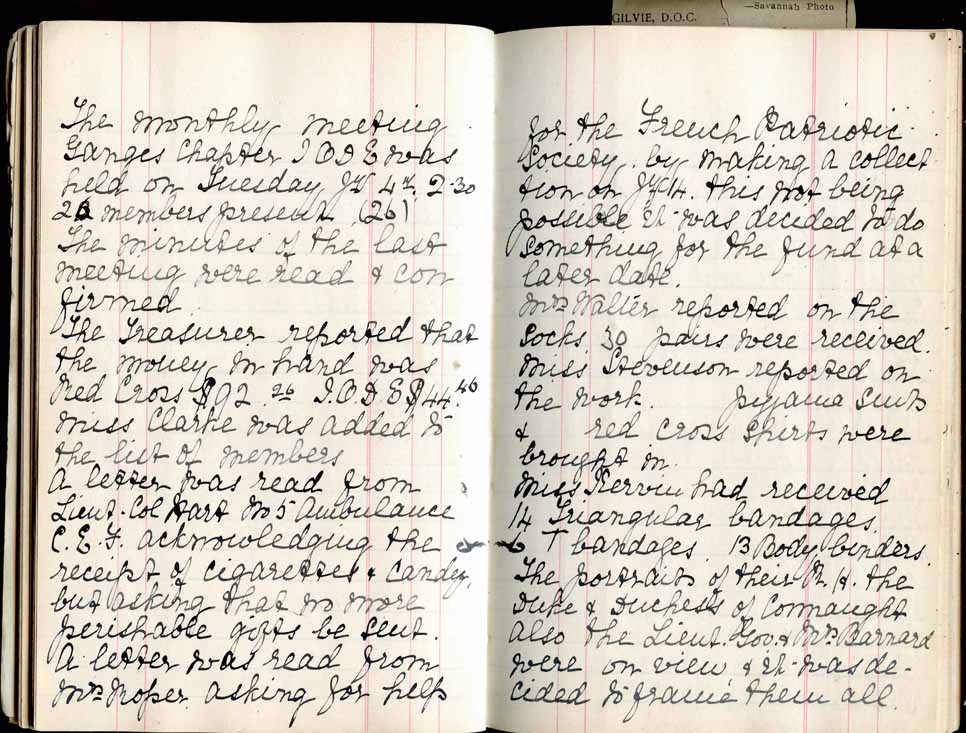 —Savannah Photo
GILVIE, D.O.C.
The monthly meeting
Ganges Chapter I O D E was
held on Tuesday Jy 4th. 2-30
26 members present (26)
The minutes of the last
meeting were read & con
firmed.
The Treasurer reported that
the money in hand was
Red Cross $92.26 I.O.D.E $44.46
Miss Clarke was added to
the list of members
A letter was read from
Lieut. Col Hart No 5 Ambulance
C.E.F. acknowledging the
receipt of cigarettes & candy,
but asking that no more
perishable gifts be sent.
A letter was read from
Mrs Roper asking for help
for the French Patriotic
Society, by making a collect
tion on Jy 14. this not being
possible it was decided to do
something for the fund at a
later date.
Mrs Walter reported on the
Socks 30 pairs were received.
Miss Stevenson reported on
the work. pyjama suits
& red cross shirts were
brought in.
Miss had received
14 Triangular bandages
6 T bandages. 13 Body binders.
The portraits of their R. H. the
Duke & Duchess of Connaught
also the Lieut. Gov. & Mrs. Barnard
were on view & it was de-
cided to frame them all.